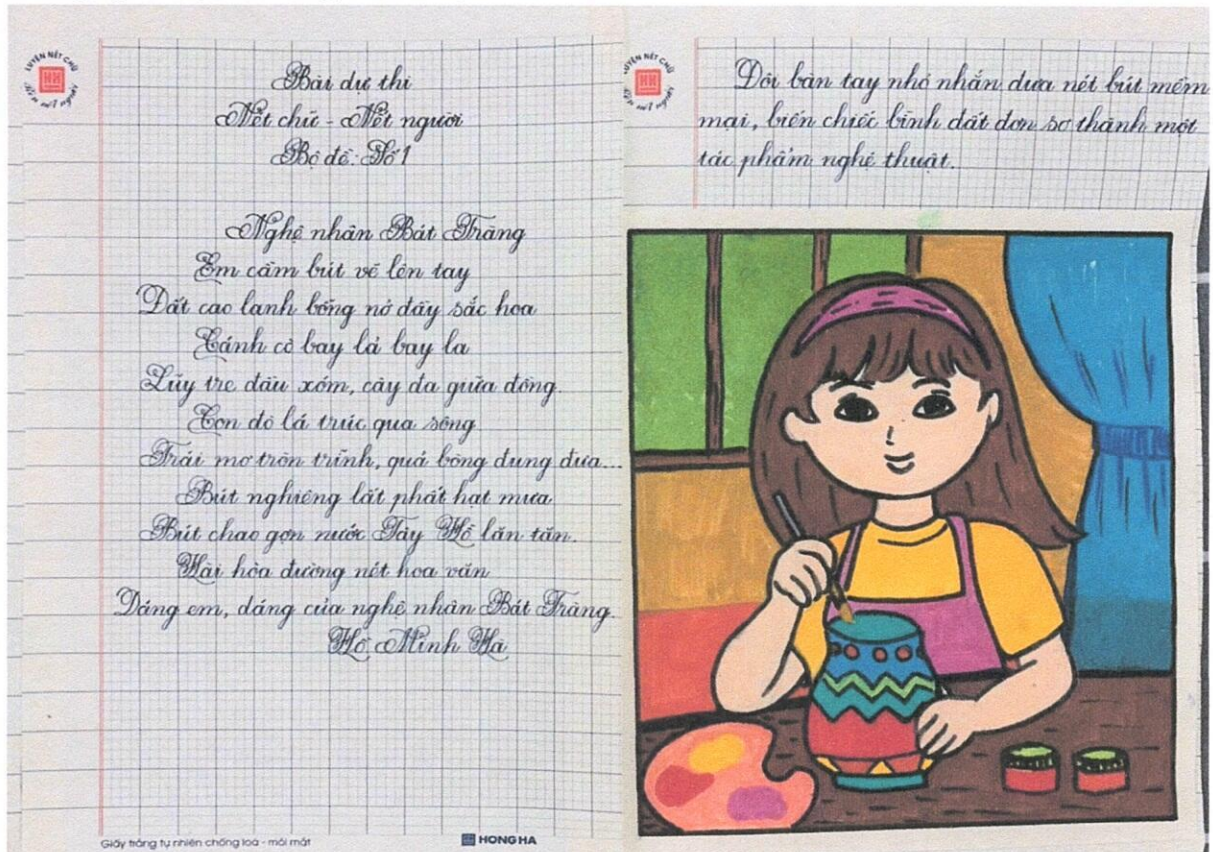 LUYỆN NÉT CHỮ
Rèn nết người
Bài dự thi
Nét chữ - Nết người
Bộ đề: Số 1
Nghệ nhân Bát Tràng
Em cầm bút vẽ lên tay
Đất cao lanh bỗng nở đầy sắc hoa
Cánh cò bay lả bay la
Lũy tre đầu xóm, cây đa giữa đồng.
Con đò lá trúc qua sông
Trái mơ tròn trĩnh, quả bòng đung đưa...
Bút nghiêng lất phất hạt mưa
Bút chao gợn nước Tây Hồ lăn tăn.
Hài hòa đường nét hoa văn
Dáng em, dáng của nghệ nhân Bát Tràng.
Hồ Minh Hà
Giấy trắng tự nhiên chống loá - mỏi mắt
HH HONG HA
LUYỆN NÉT CHỮ
Rèn nết người
Đôi bàn tay nhỏ nhắn đưa nét bút mềm
mại, biến chiếc bình đất đơn sơ thành một
tác phẩm nghệ thuật.